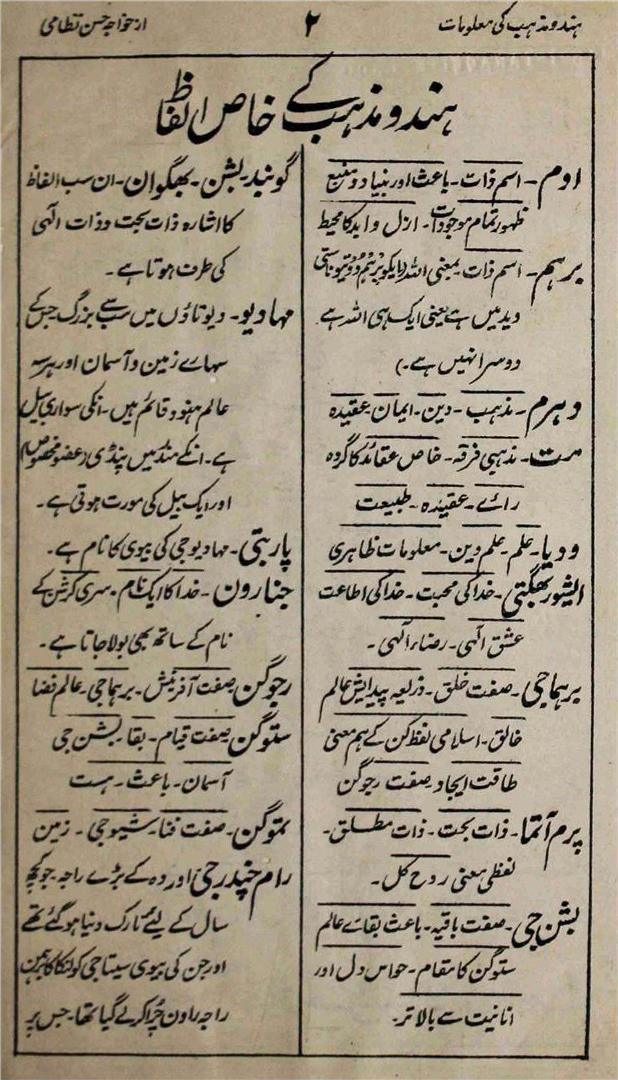 ہندو مذہب کی معلومات
۲
از خواجہ حسن نظامی
ہندو مذہب کے خاص الفاظ
اوم۔ اسم ذات۔ باعث اور بنیاد و منبع
ظہور تمام موجودات۔ ازل و ابد کا محیط
برہم۔ اسم ذات۔ بمعنی اللہ (ایکو برہم دوتیو ناستی
وید میں ہے یعنی ایک ہی اللہ ہے
دوسرا نہیں ہے۔)
دھرم۔ مذہب۔ دین۔ ایمان۔ عقیدہ
مت۔ مذہبی فرقہ۔ خاص عقائد کا گروہ
رائے۔ عقیدہ۔ طبیعت
ودیا۔ علم۔ علم دین۔ معلومات ظاہری
ایشور بھگتی۔ خدا کی محبت۔ خدا کی اطاعت
عشق الٰہی۔ رضاء الٰہی۔
برہما جی۔ صفت خلق۔ ذریعہ پیدایش عالم
خالق۔ اسلامی لفظ کن کے ہم معنی
طاقت ایجاد۔ صفت رجوگن
پرم آتما۔ ذات بحت۔ ذات مطلق۔
لفظی معنی روح کل۔
بشن جی۔ صفت باقیہ۔ باعث بقائے عالم
ستوگن کا مقام۔ حواس دل اور
انانیت سے بالاتر۔
گوبند۔ بشن۔ بھگوان۔ ان سب الفاظ
کا اشارہ ذات بحت و ذات الٰہی
کی طرف ہوتا ہے۔
مہادیو۔ دیوتاؤں میں سب سے بزرگ جس کے
سہارے زمین و آسمان اور ہر سہ
عالم ہنود قائم ہیں۔ انکی سواری بیل
ہے۔ انکے مندر میں پنڈی (عضو مخصوص)
اور ایک بیل کی مورت ہوتی ہے۔
پاربتی۔ مہادیو جی کی بیوی کا نام ہے۔
جناردن۔ خدا کا ایک نام۔ سری کرشن کے
نام کے ساتھ بھی بولا جاتا ہے۔
رجوگن۔ صفت آفرینش۔ برہما جی۔ عالم فضا
ستوگن۔ صفت قیام۔ بقا۔ بشن جی
آسمان۔ باعث۔ ہست
تموگن۔ صفت فنا۔ شیو جی۔ زمین
رام چندر جی۔ اودھ کے بڑے راجہ۔ جو کچھ
سال کے لیئے تارک دنیا ہو گئے تھے
اور جن کی بیوی سیتا جی کو لنکا کا
راجہ راون چرا کر لے گیا تھا۔ جس پر